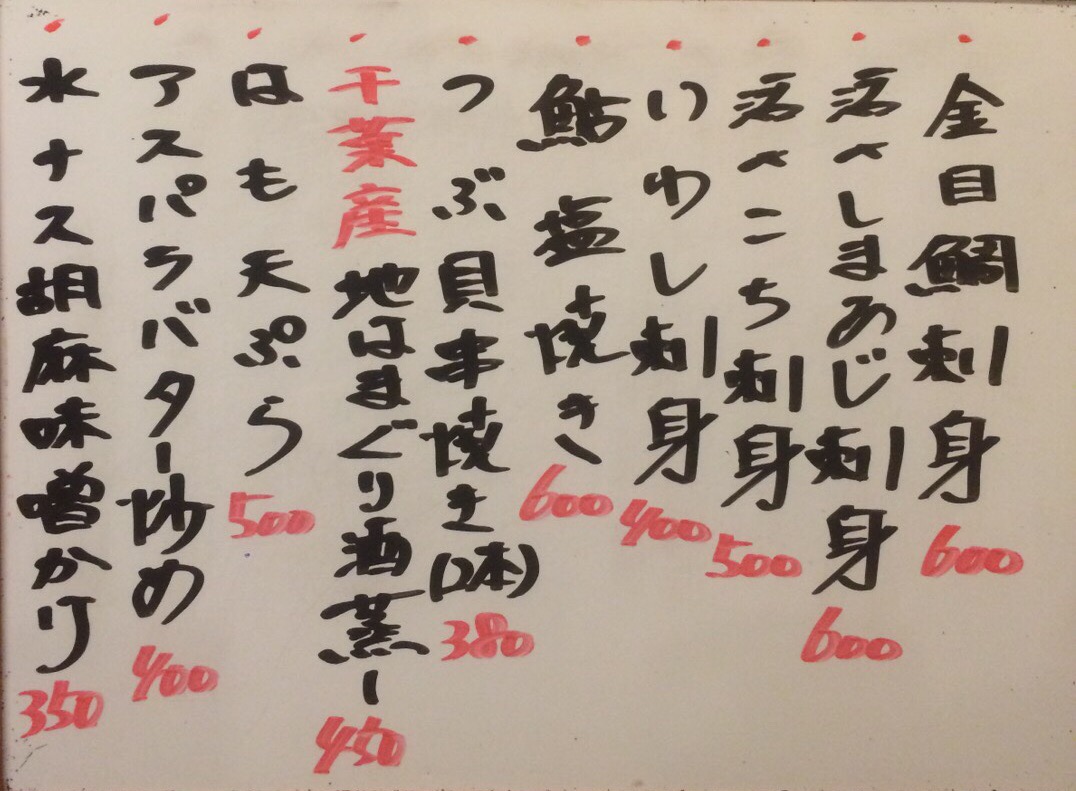 金目鯛刺身 600
活〆しまあじ刺身 600
活〆こち刺身 500
いわし刺身 400
鮎 塩焼き 600
つぶ貝串焼き(2本) 380
千葉産 地はまぐり酒蒸し 450
はも天ぷら 500
アスパラバター炒め 400
水ナス胡麻味噌かけ 350